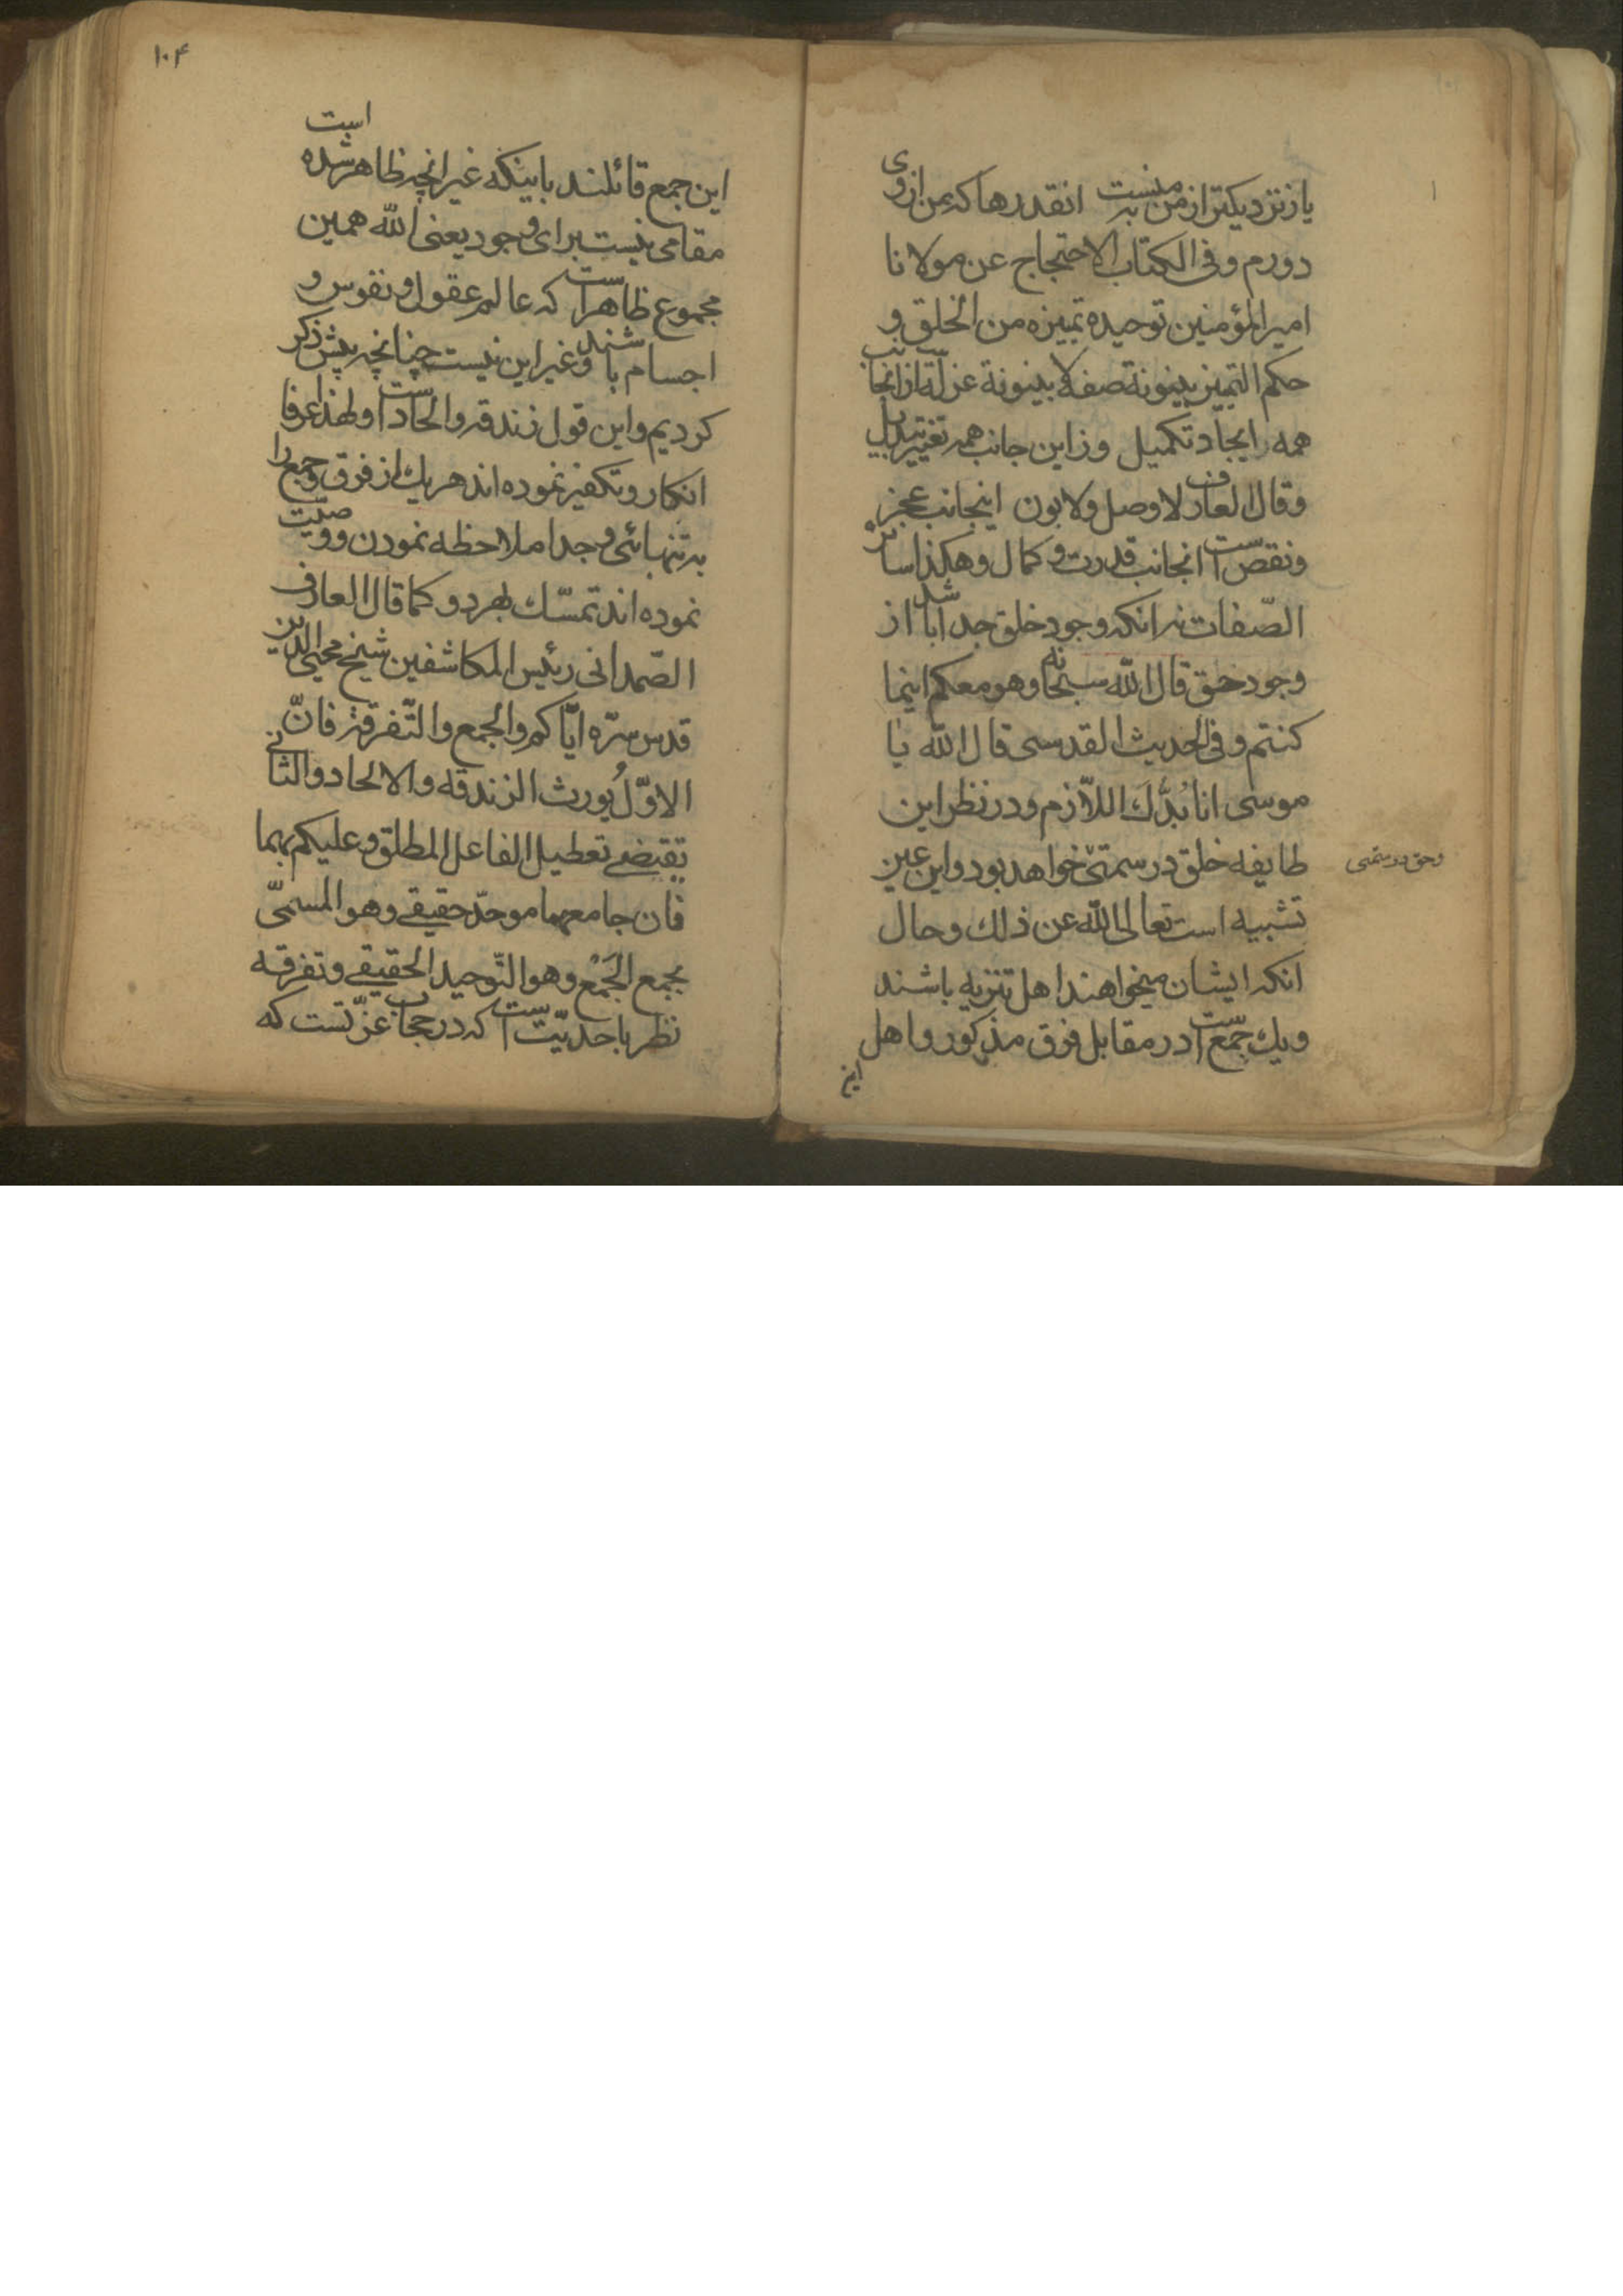 یار نزدیکتر از من بمنست انقدرها که من از وی
دورم و فی الکتاب الاحتجاج عن مولانا
امیر المؤمنین توحیده تمییزه من الخلق و
حکم التمییز بینونة صفة لا بینونة عزلة از انجانب
همه ایجاد تکمیل و زاین جانب همه تغییر تبدیل
و قال العارف لا وصل و لا بون اینجانب عجز
و نقص است انجانب قدرت و کمال و هکذا سائر
الصّفات نه انکه وجود خلق جدا باشد از
وجود حق قال الله سبحانه و هو معکم اینما
کنتم و فی الحدیث القدسی قال الله یا
موسی انا بُدُّكَ اللاّزم و در نظر این
طایفه خلق در سمتی خواهد بود و این عین
وحق در سمتی
تشبیه است تعالی الله عن ذلك و حال
انکه ایشان میخواهند اهل تنزیه باشند
و یك جمع است در مقابل فرق مذکور و اهل
این
۱۰۴
این جمع قائلند باینکه غیر انچه ظاهر شده است
مقامی نیست برای وجود یعنی الله همین
مجموع ظاهر است که عالم عقول و نفوس و
اجسام باشند و غیر این نیست چنانچه پیش ذکر
کردیم و این قول زندقه و الحاد است و لهذا عرفا
انکار و تکفیر نموده اند هر یك از فرق و جمع را
به تنهائی و جدا ملاحظه نمودن و وصیت
نموده اند تمسّك بهر دو کما قال العارف
الصّمدانی رئیس المکاشفین شیخ محیی الدین
قدس سرّه ایّاکم و الجمع و التّفرقة فانّ
الاوّلُ یورث الزندقه و الالحاد و الثانی
تقتضی تعطیل الفاعل المطلق و علیکم بهما
فان جامعهما موحدّ حقیقی و هو المسمّی
بجمع الجَمْع و هو التّوحید الحقیقی و تفرقه
نظر باحدیّت است که در حجاب عزّتست که